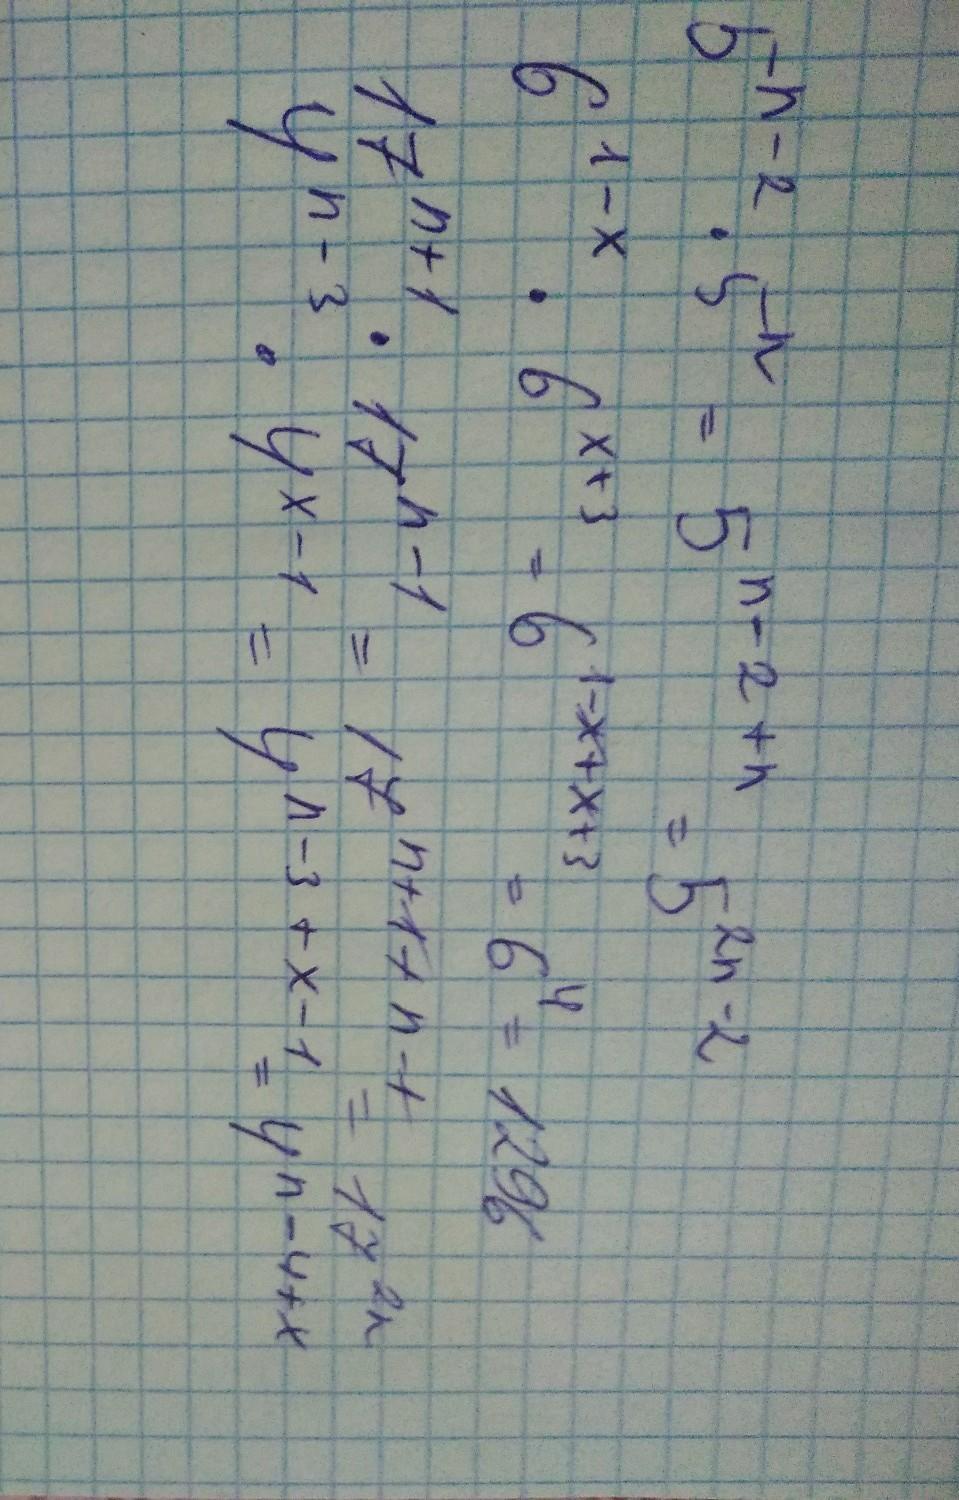 5^{-n-2} · 5^{-n} = 5^{n-2+n} = 5^{2n-2}
6^{1-x} · 6^{x+3} = 6^{1-x+x+3} = 6^4 = 1296
17^{n+1} · 17^{n-1} = 17^{n+1+n-1} = 17^{2n}
y^{n-3} · y^{x-1} = y^{n-3+x-1} = y^{n-4+x}